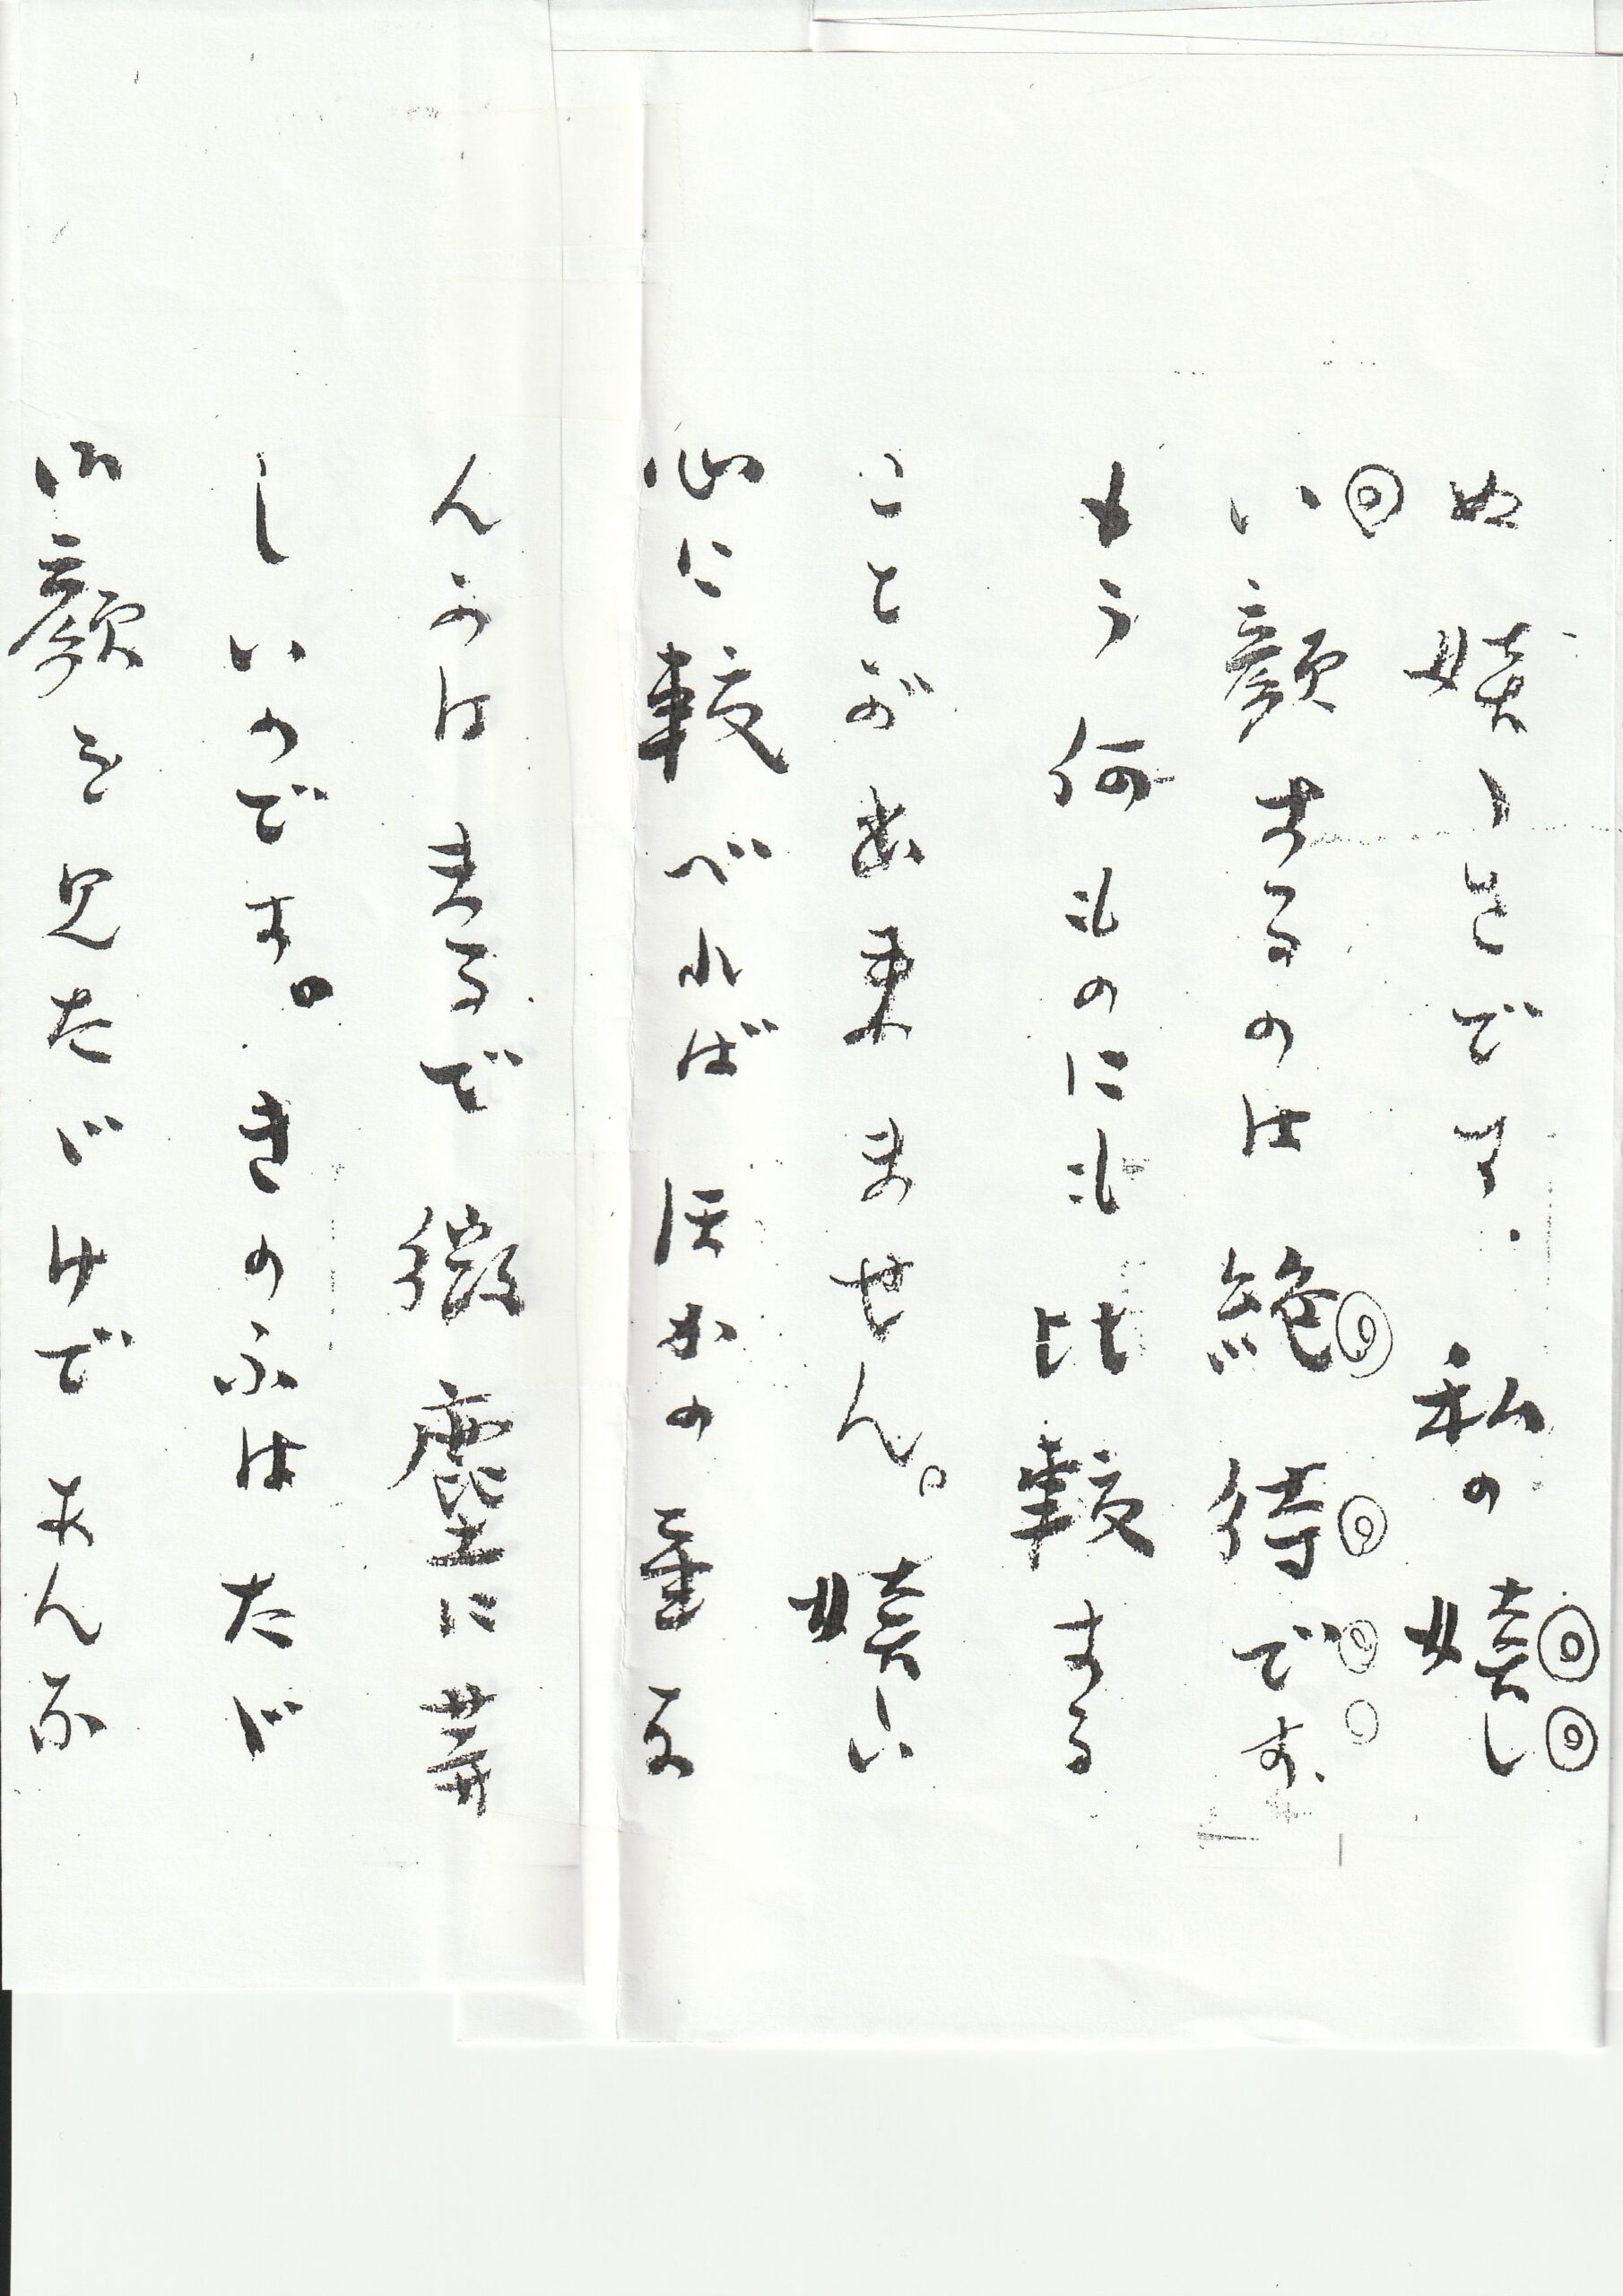 ぬ嬉しさです。私の嬉し
い顔するのは絶待です。
もう何ものにも比較する
ことが出来ません。嬉しい
心に較べればほかの事な
んかはまるで微塵に等
しいのです。きのふはたゞ
御顔を見たゞけでそんな